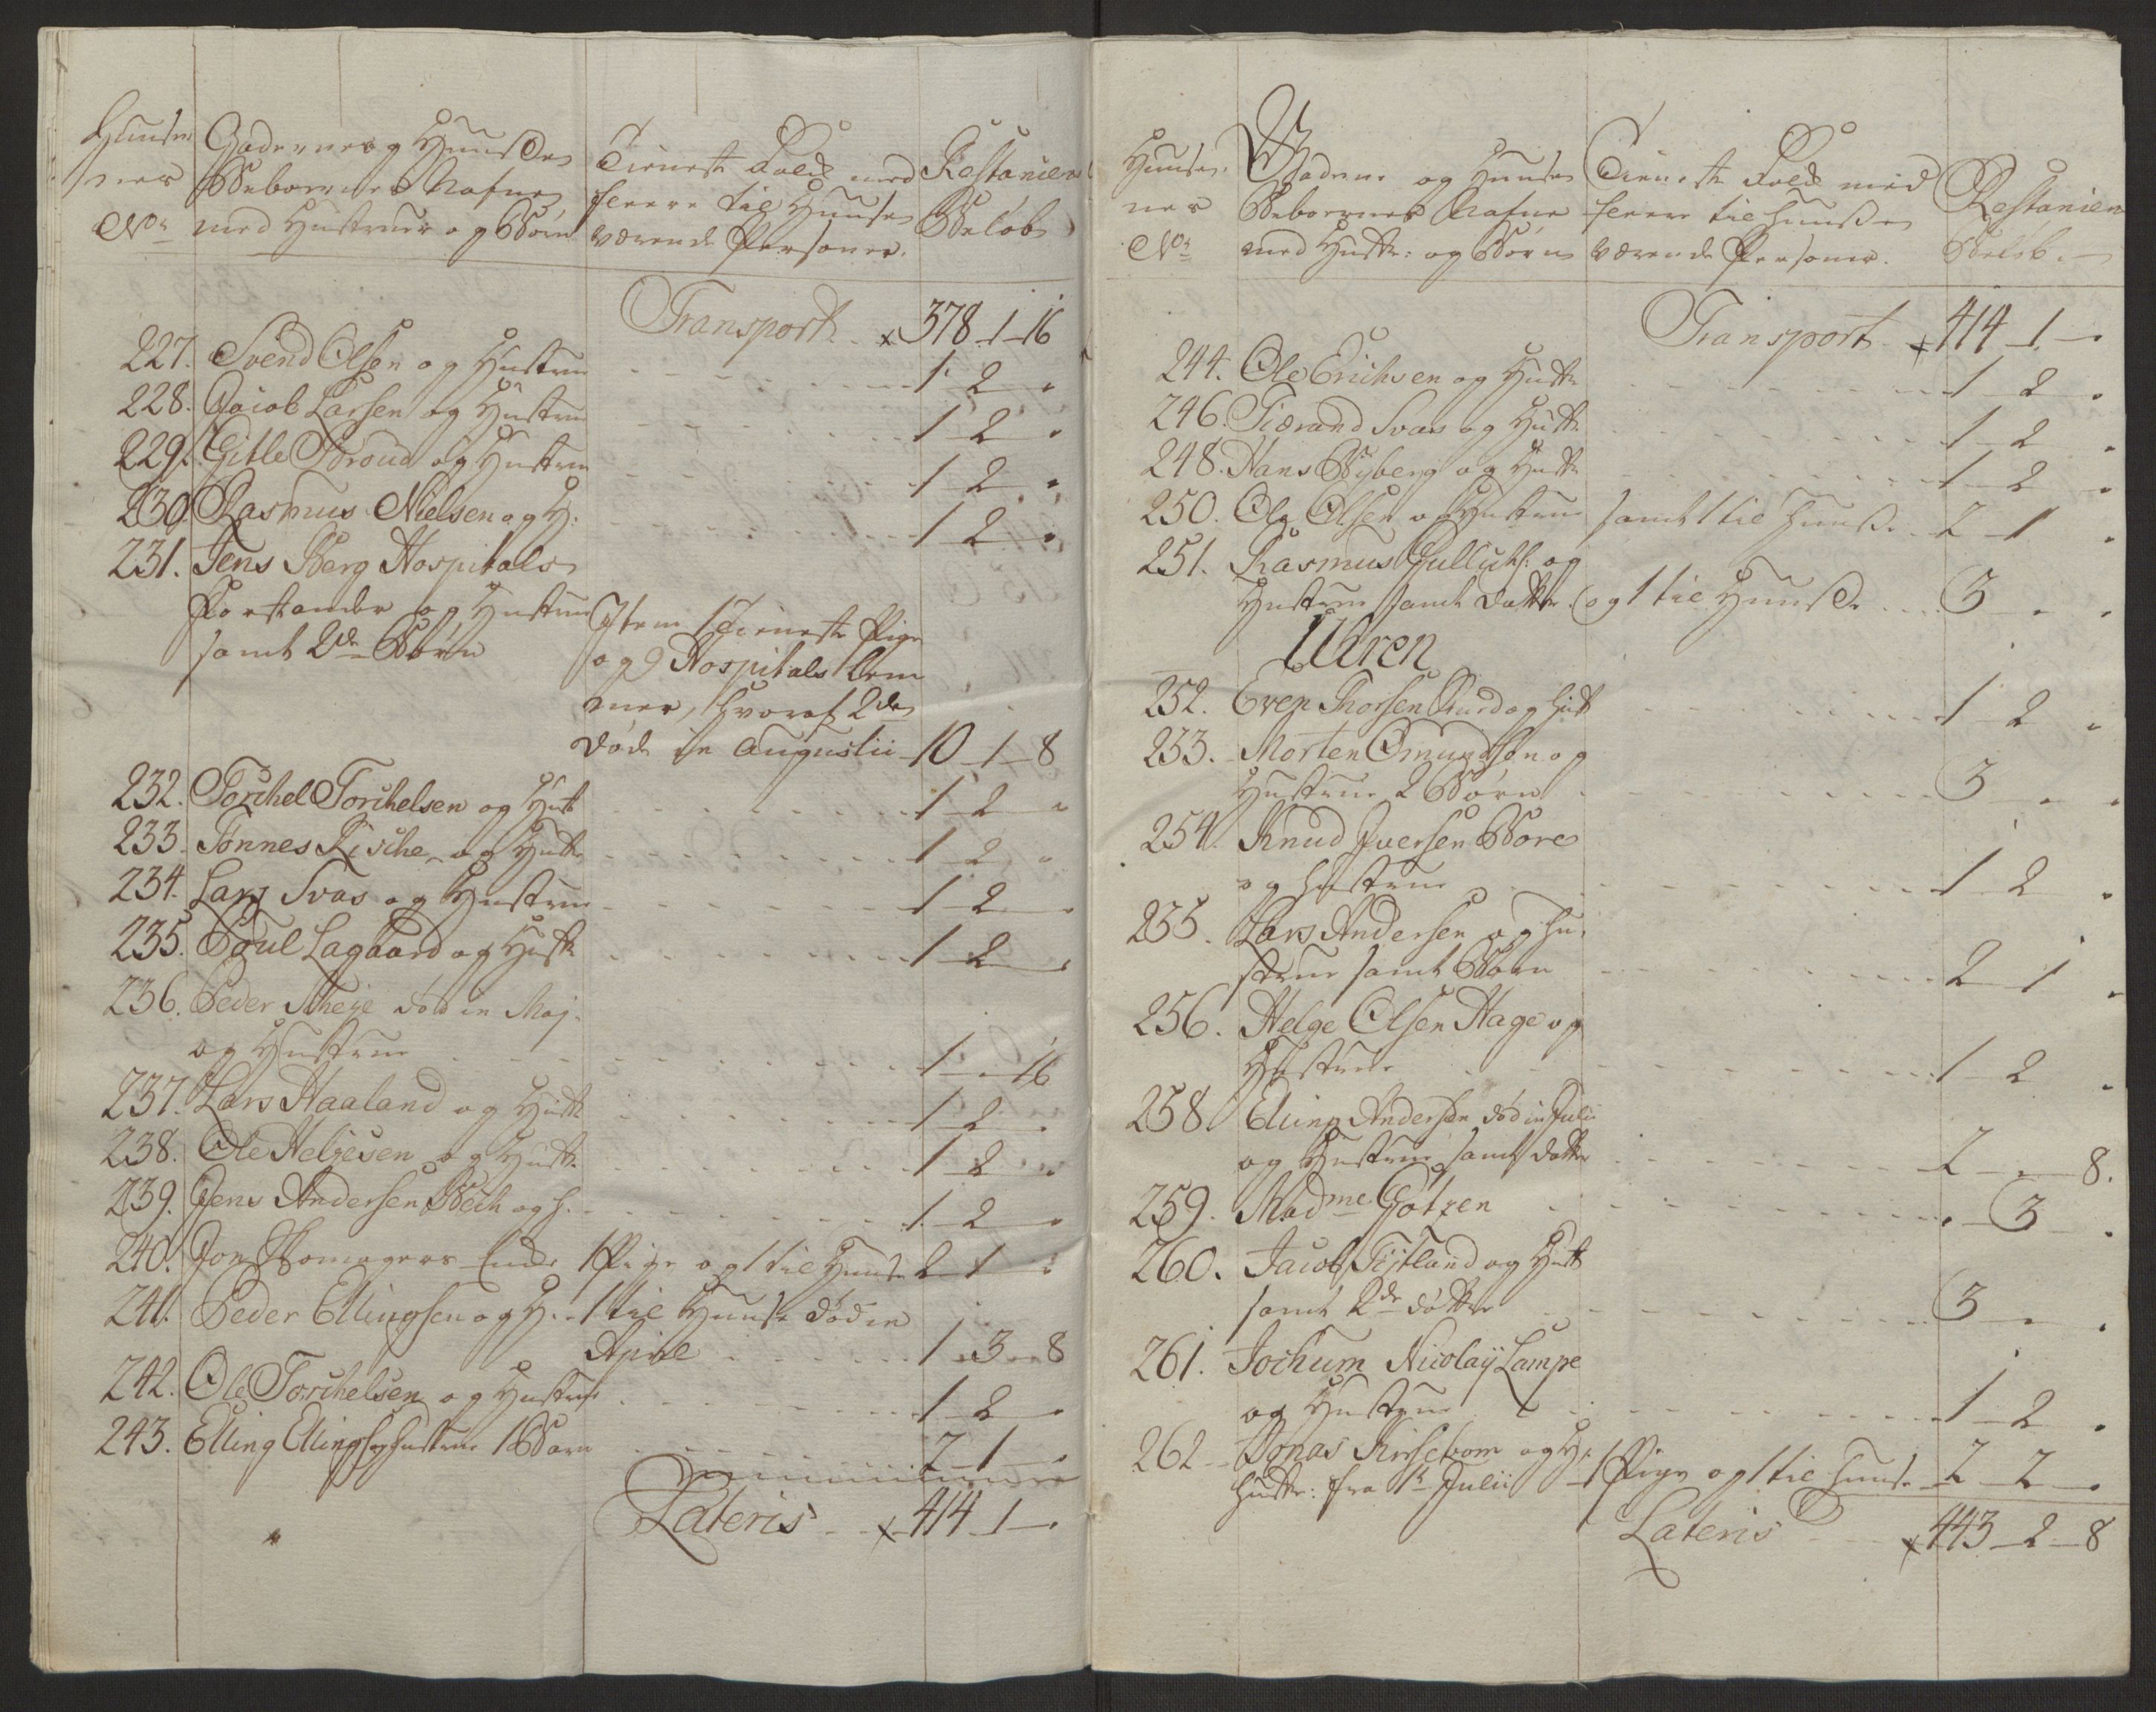 Huuse
nes
No
Gaderne og Huusenes
Beboernes Nafne
med Hustruer og Børn
Tieneste Folk med
fleere til Huuse
værende Personer.
Restancien
Beløb
Transport 378 1 16
227. Svend Olsen og Hustrue 1 2 "
228. Jacob Larsen og Hustrue 1 2 "
229. Gitle Broud og Hustrue 1 2 "
230. Rasmus Nielsen og H. 1 2 "
231. Jens Berg Hospitals
Forstander og Hustrue
samt 2de Børn
Item 1 Tieneste Pige
og 9 Hospitals Lem
mer, hvoraf 2de
døde in Augustii 10 1 8
232. Torchel Torchelsen og Hust 1 2 "
233. Tønnes Rische og Hustr 1 2 "
234. Lars Svas og Hustrue 1 2 "
235. Poul Lagaard og Hustr 1 2 "
236. Peder Scheye død in Maj
og Hustrue 1 " 16
237. Lars Haaland og Hustr 1 2 "
238. Ole Helgesen og Hustr. 1 2 "
239. Jens Andersen Bech og H. 1 2 "
240. Jon Bomagers Enke 1 Pige og 1 til Huuse 2 1 "
241. Peder Ellingsen og H. 1 til Huuse død in
April 1 3 8
242. Ole Torchelsen og Hustrue 1 2 "
243. Elling Ellings og Hustrue 1 Barn 2 1 "
Lateris 414 1 "
Huuse
nes
No
Gaderne og Huuse
Beboernes Nafne
med Hustr: og Børn
Tieneste Folk med
fleere til Huuse
værende Personer.
Restancien
Beløb.
Transport 414 1 "
244. Ole Erichsen og Hustr 1 2 "
246. Tiærand Svas og Hustr 1 2 "
248. Hans Byberg og Hustr 1 2 "
250. Ole Olsen og Hustrue samt 1 til Huuse 2 1 "
251. Rasmus Gullichs: og
Hustrue samt Datter og 1 til Huuse 3 " "
Uhren
252. Even Thorsen Ruud og Hust 1 2 "
253. Morten Omundsen og
Hustrue 2 Børn 3 " "
254. Knud Iversen Bore
og Hustrue 1 2 "
255. Lars Andersen og Hu
strue samt Barn 2 1 "
256. Helge Olsen Hage og
Hustrue 1 2 "
258. Elling Andersen død in Julii
og Hustrue samt Datter 2 " 8.
259. Madme Gøtzen " 3 "
260. Jacob Tiitland og Hust
samt 2de Døttre 3 " "
261. Jochum Nicolaij Lampe
og Hustrue 1 2 "
262 Jonas Kirsebom og H:
Hustr: fra 1te Julii 1 Pige og 1 til Huuse 2 2 "
Lateris 443 2 8